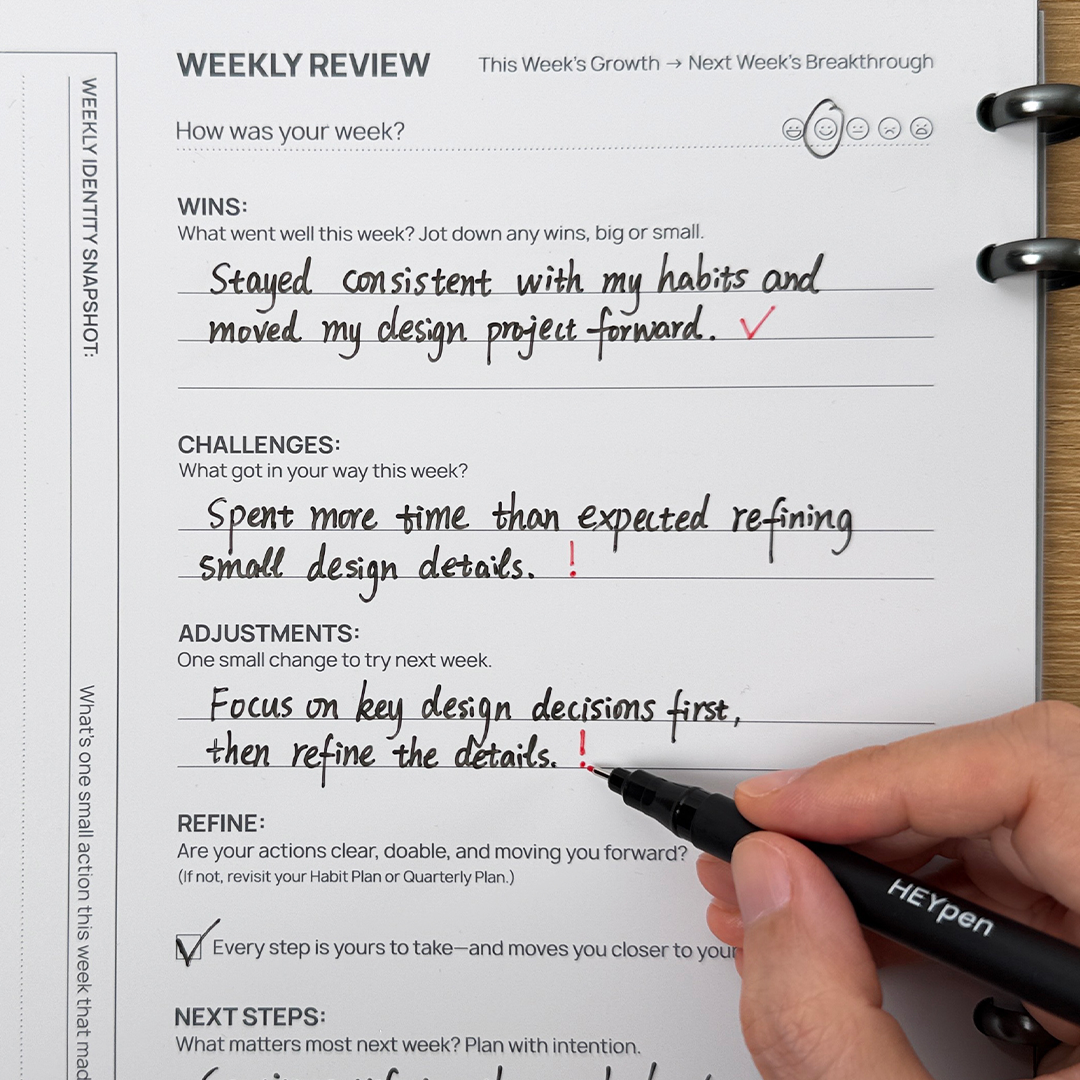 WEEKLY REVIEW This Week's Growth → Next Week's Breakthrough
How was your week?
WINS:
What went well this week? Jot down any wins, big or small.
Stayed consistent with my habits and
moved my design project forward. ✓
CHALLENGES:
What got in your way this week?
Spent more time than expected refining
small design details. !
ADJUSTMENTS:
One small change to try next week.
Focus on key design decisions first,
then refine the details. !
REFINE:
Are your actions clear, doable, and moving you forward?
(If not, revisit your Habit Plan or Quarterly Plan.)
Every step is yours to take—and moves you closer to your
NEXT STEPS:
What matters most next week? Plan with intention.
WEEKLY IDENTITY SNAPSHOT:
What's one small action this week that mad
HEYpen